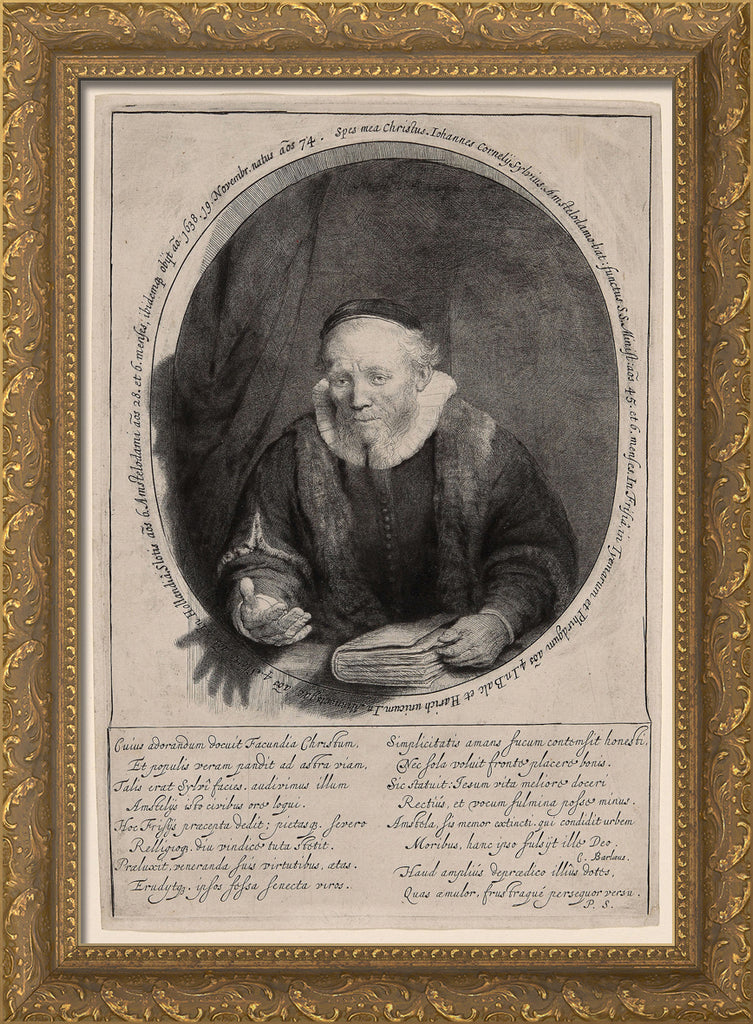 Spes mea Christus. Iohannes Cornelij Sylvius, Amstelodamo-bat: functus S.S. Minist: aōs 45. et 6. menses. In Frisiâ, in Tyemarum et Phirdgum aōs 4. In Balc et Harich unicum. In aōs 4. In Hollandiâ, Slotis aōs 6. Amstelodami aōs 28. et 6. menses, ibidemq₃ obijt aō. 1638. 19. Novembr. natus aōs 74.
Cuius adorandum docuit Facundia Christum,
Et populis veram pandit ad astra viam,
Talis erat Sylvî facies. audivimus illum
Amstelijs isto civibus ore loqui.
Hoc Frisijs præcepta dedit; pietasq₃. severo
Relligioq₃. diu vindice tuta stetit.
Præluxit, veneranda suis virtutibus, ætas.
Erudytq₃. ipsos fessa senecta viros.
Simplicitatis amans fucum contemsit honesti,
Nec sola voluit fronte placere bonis.
Sic statuit: Iesum vita meliore doceri
Rectiùs, et vocum fulmina posse minus.
Amstela, sis memor extincti. qui condidit urbem
Moribus, hanc ipso fulsijt ille Deo.
C. Barlæus.
Haud ampliùs deprædico illius dotes,
Quas æmulor, frustraqué persequor versu.
P. S.